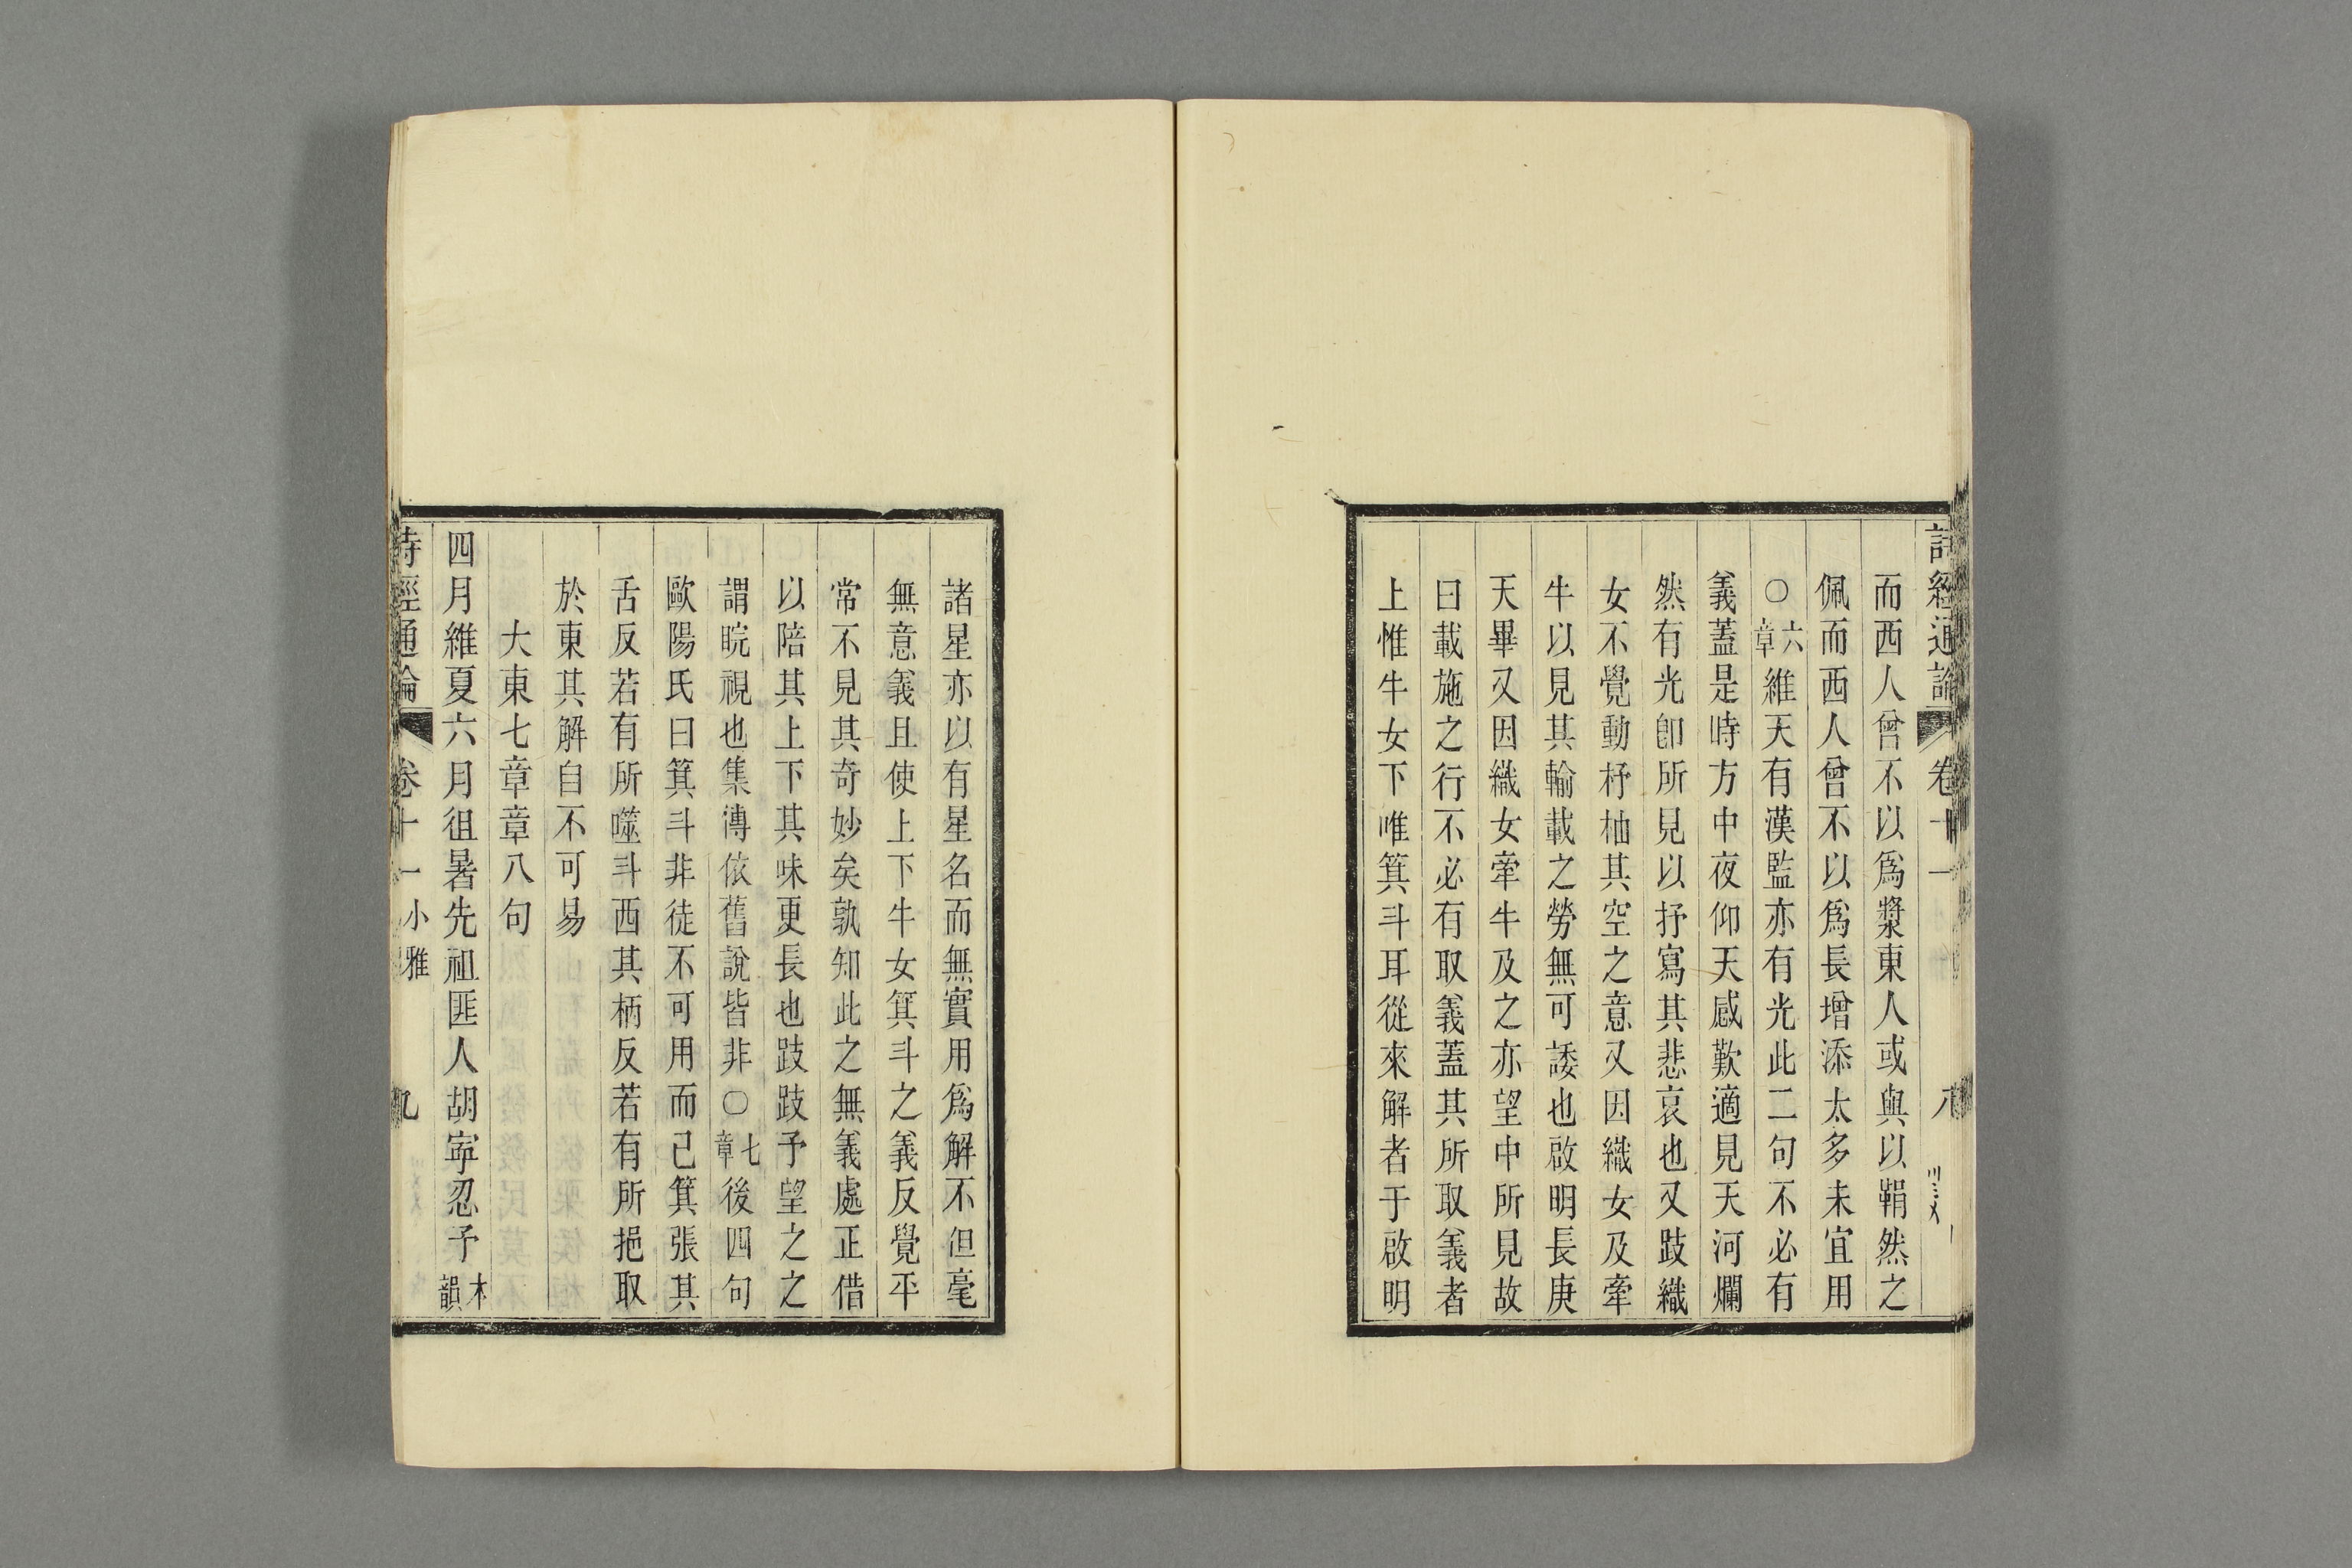 詩經通論 卷十一 八
而西人曾不以爲漿東人或與以鞙然之
佩而西人曾不以爲長增添太多未宜用
○六章維天有漢監亦有光此二句不必有
義蓋是時方中夜仰天感歎適見天河爛
然有光卽所見以抒寫其悲哀也又跂織
女不覺動杼柚其空之意又因織女及牽
牛以見其輸載之勞無可諉也啟明長庚
天畢又因織女牽牛及之亦望中所見故
曰載施之行不必有取義蓋其所取義者
上惟牛女下唯箕斗耳從來解者于啟明
諸星亦以有星名而無實用爲解不但毫
無意義且使上下牛女箕斗之義反覺平
常不見其奇妙矣孰知此之無義處正借
以陪其上下其味更長也跂跂予望之之
謂睆視也集傳依舊說皆非○七章後四句
歐陽氏曰箕斗非徒不可用而已箕張其
舌反若有所噬斗西其柄反若有所挹取
於東其解自不可易
大東七章章八句
四月維夏六月徂暑先祖匪人胡寧忍予本韻
詩經通論 卷十一小雅 九